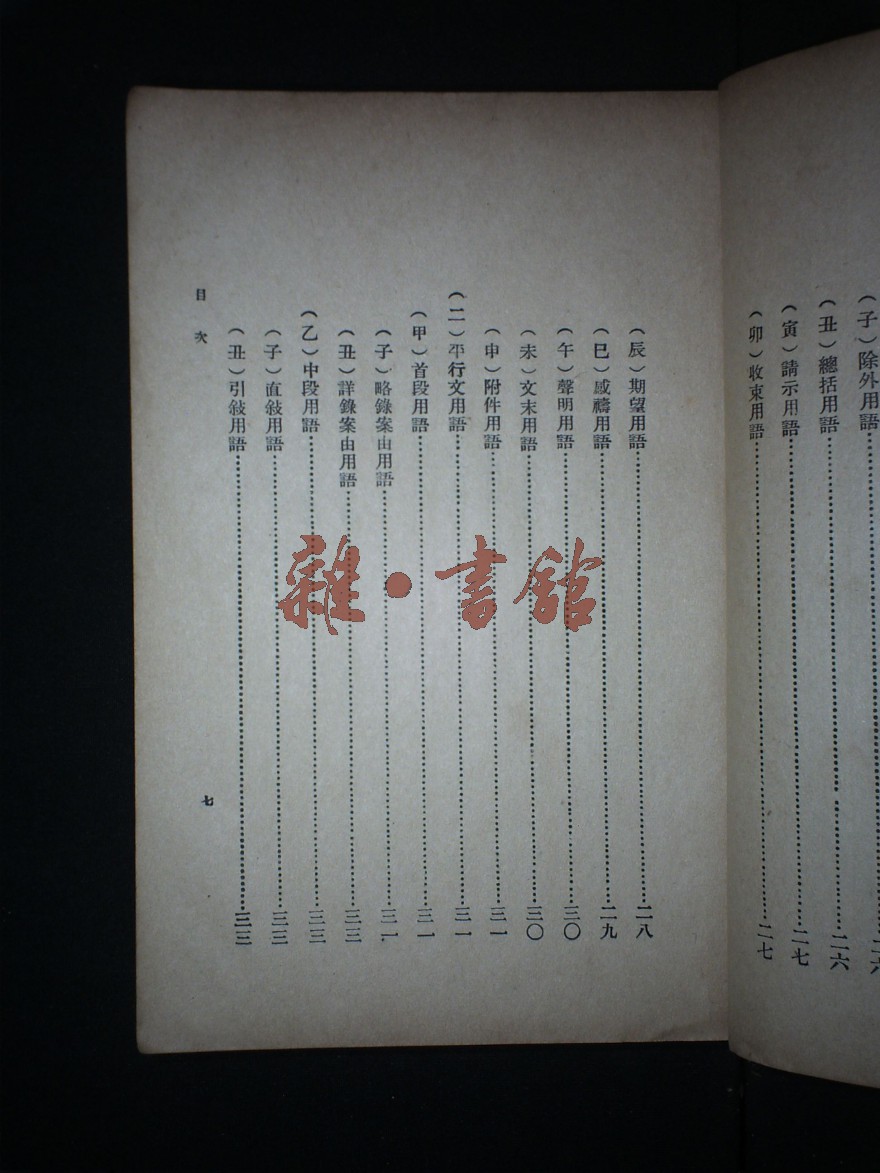 （子）除外用語……二六
（丑）總括用語……二六
（寅）請示用語……二七
（卯）收束用語……二七
（辰）期望用語……二八
（巳）感禱用語……二九
（午）聲明用語……三〇
（未）文末用語……三〇
（申）附件用語……三一
（二）平行文用語……三一
（甲）首段用語……三一
（子）略錄案由用語……三一
（丑）詳錄案由用語……三三
（乙）中段用語……三三
（子）直敍用語……三三
（丑）引敍用語……三三
目次
七
雜·書館